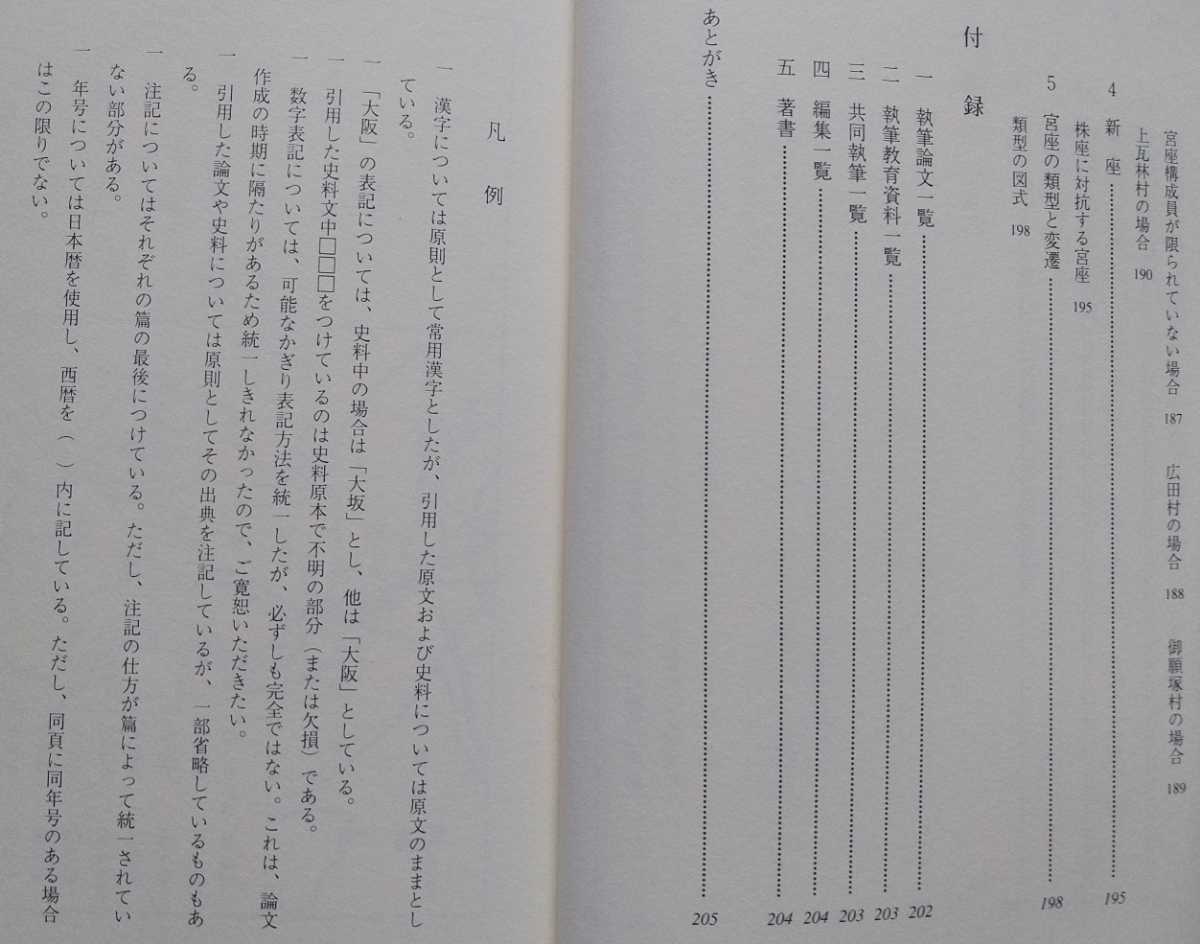 宮座構成員が限られていない場合 187 広田村の場合 188 御願塚村の場合 189
上瓦林村の場合 190
4 新座 195
株座に対抗する宮座 195
5 宮座の類型と変遷 198
類型の図式 198
付録
一 執筆論文一覧 202
二 執筆教育資料一覧 203
三 共同執筆一覧 203
四 編集一覧 204
五 著書 204
あとがき 205
凡例
一 漢字については原則として常用漢字としたが、引用した原文および史料については原文のままとし
ている。
一 「大阪」の表記については、史料中の場合は「大坂」とし、他は「大阪」としている。
一 引用した史料文中□□□をつけているのは史料原本で不明の部分(または欠損)である。
一 数字表記については、可能なかぎり表記方法を統一したが、必ずしも完全ではない。これは、論文
作成の時期に隔たりがあるため統一しきれなかったので、ご寛恕いただきたい。
一 引用した論文や史料については原則としてその出典を注記しているが、一部省略しているものもあ
る。
一 注記についてはそれぞれの篇の最後につけている。ただし、注記の仕方が篇によって統一されてい
ない部分がある。
一 年号については日本暦を使用し、西暦を( )内に記している。ただし、同頁に同年号のある場合
はこの限りでない。